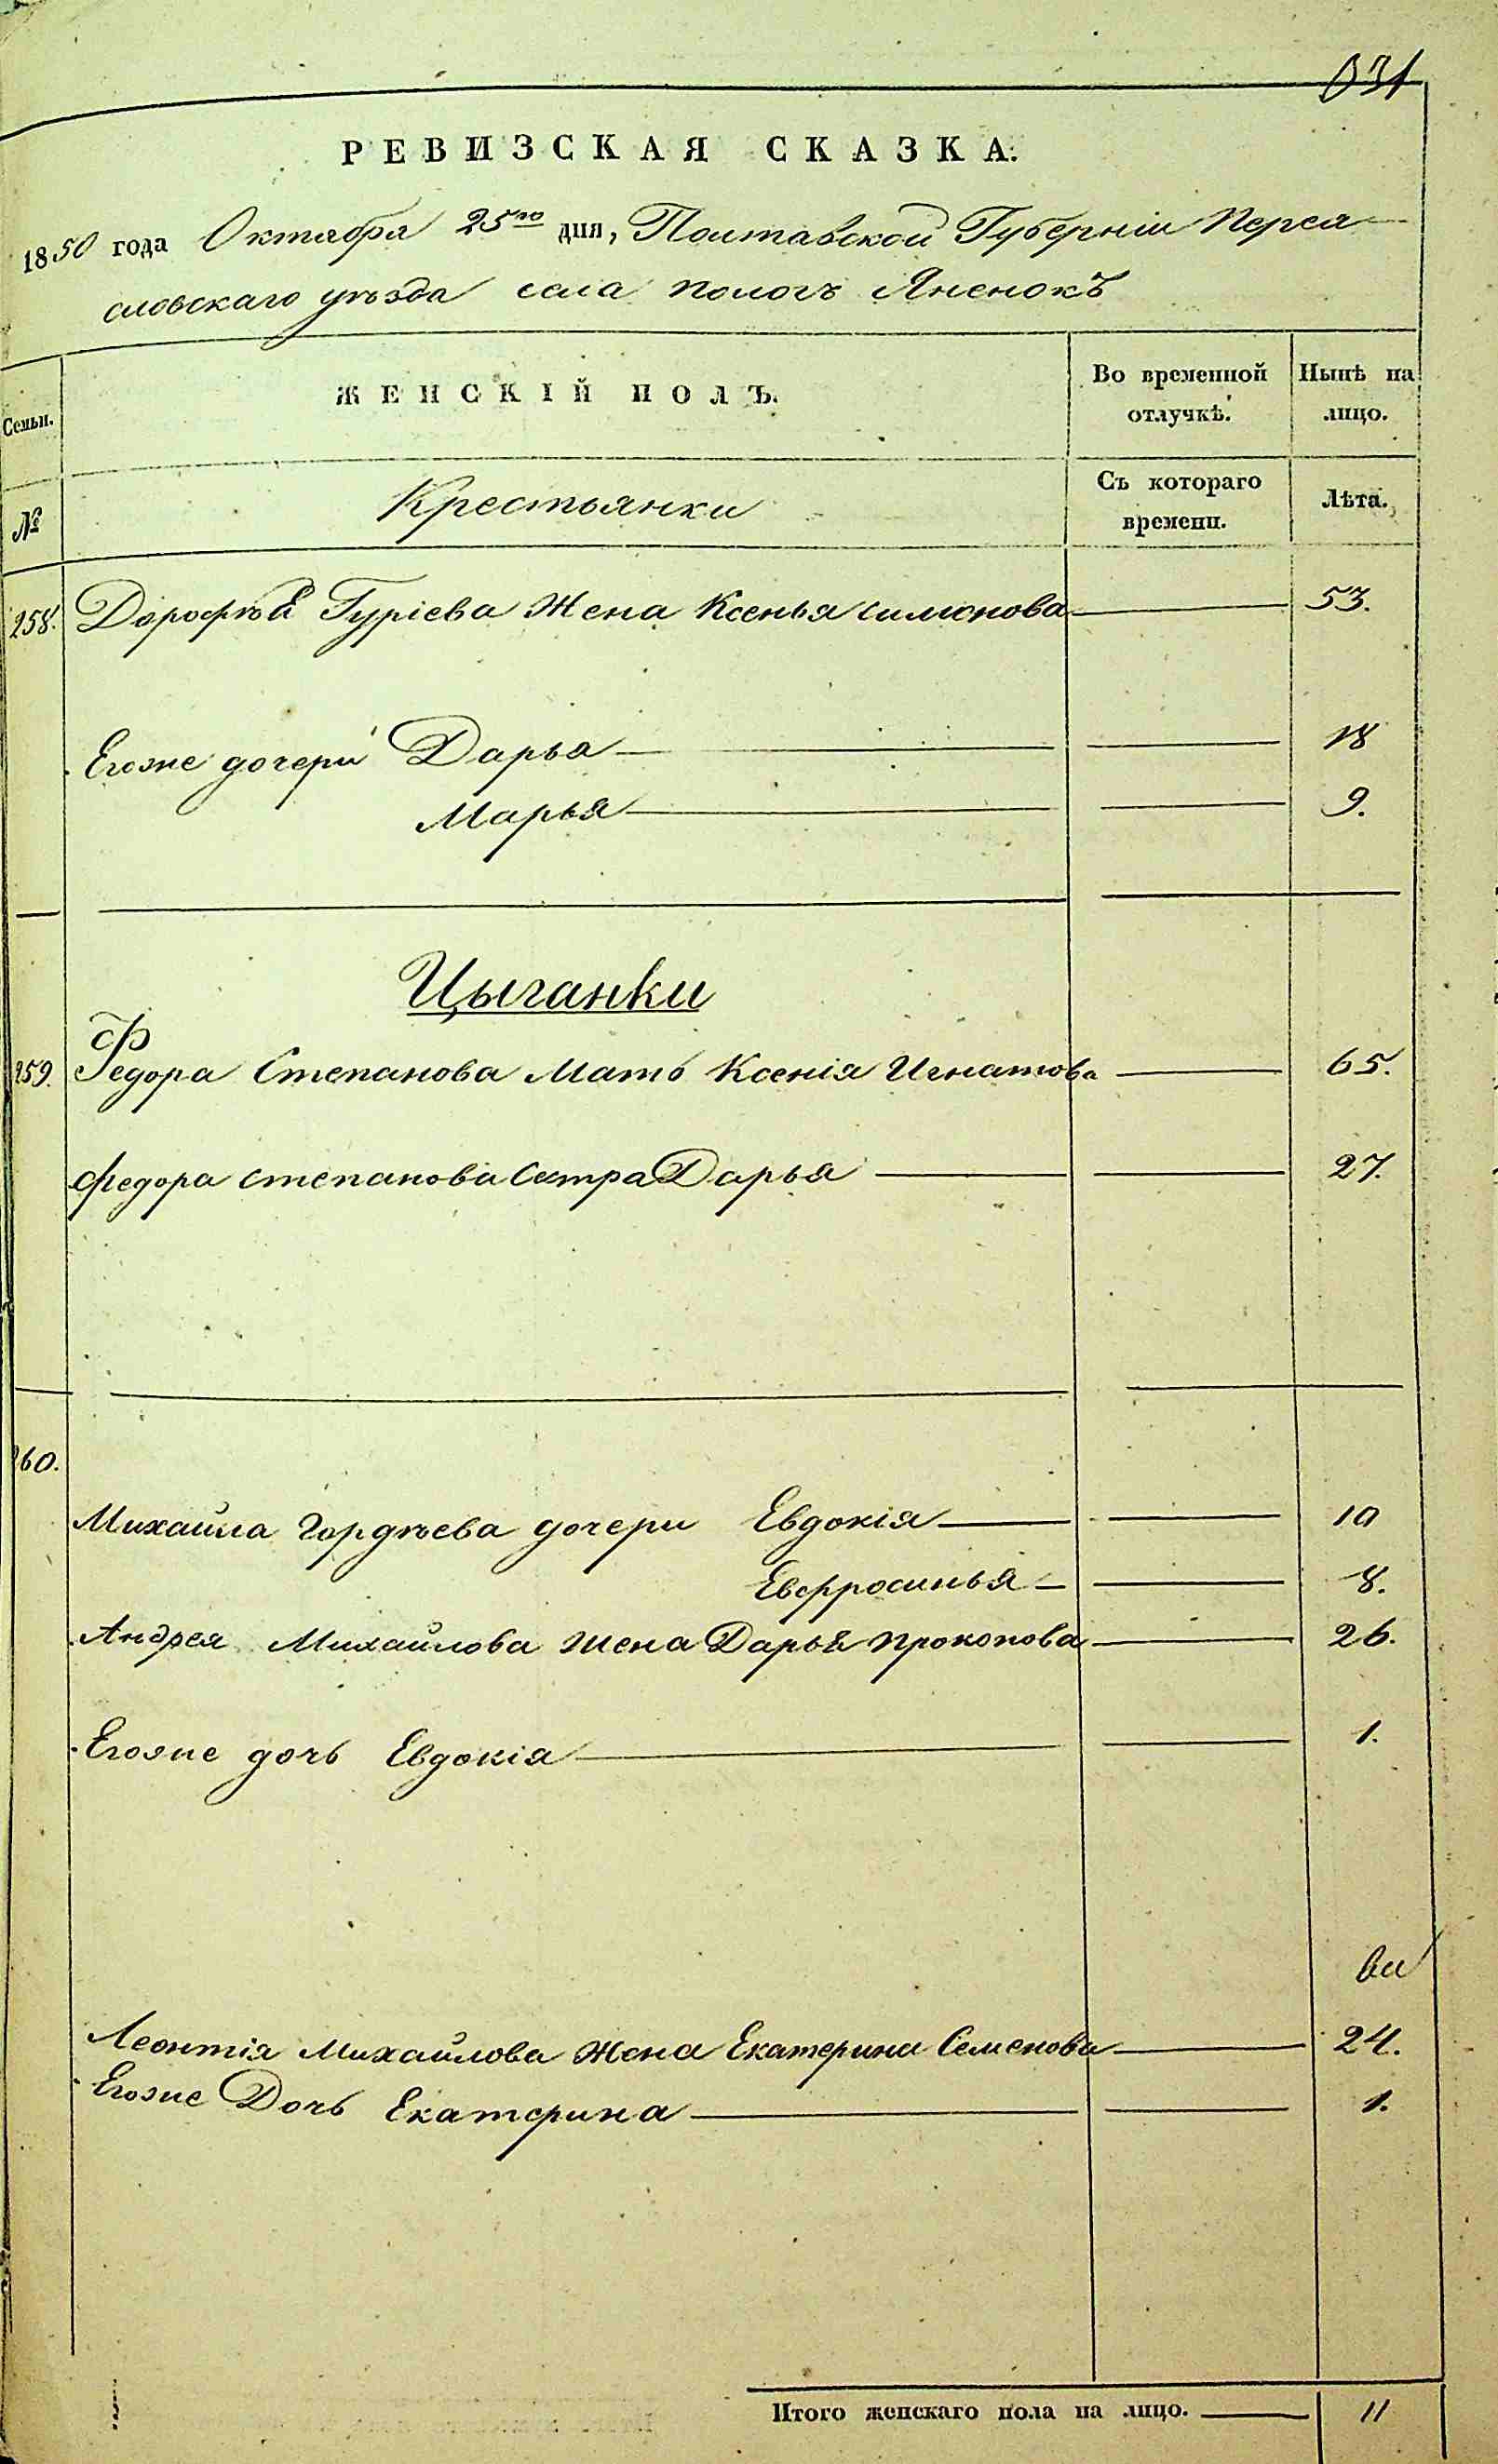 РЕВИЗСКАЯ СКАЗКА.
1850 года Октября 25го дня, Полтавской Губерніи Перея-
словскаго уѣзда села Пологъ Яненокъ
Семьи. ЖЕНСКІЙ ПОЛЪ. Во временной отлучкѣ. Нынѣ на лицо.
№ Крестьянки Съ котораго времени. Лѣта.
258. Дорофѣя Гуріева Жена Ксенья Симонова 53.
Егоже дочери Дарья 18
Марья 9.
Цыганки
259. Федора Степанова Мать Ксенія Игнатова 65.
Федора Степанова Сестра Дарья 27.
260.
Михайла Гордѣева дочери Евдокія 10
Евфросинья 8.
Андрея Михайлова жена Дарья Прокопова 26.
Егоже дочь Евдокія 1.
Леонтія Михайлова Жена Екатерина Семенова 24.
Егоже Дочь Екатерина 1.
Итого женскаго пола на лицо. 11